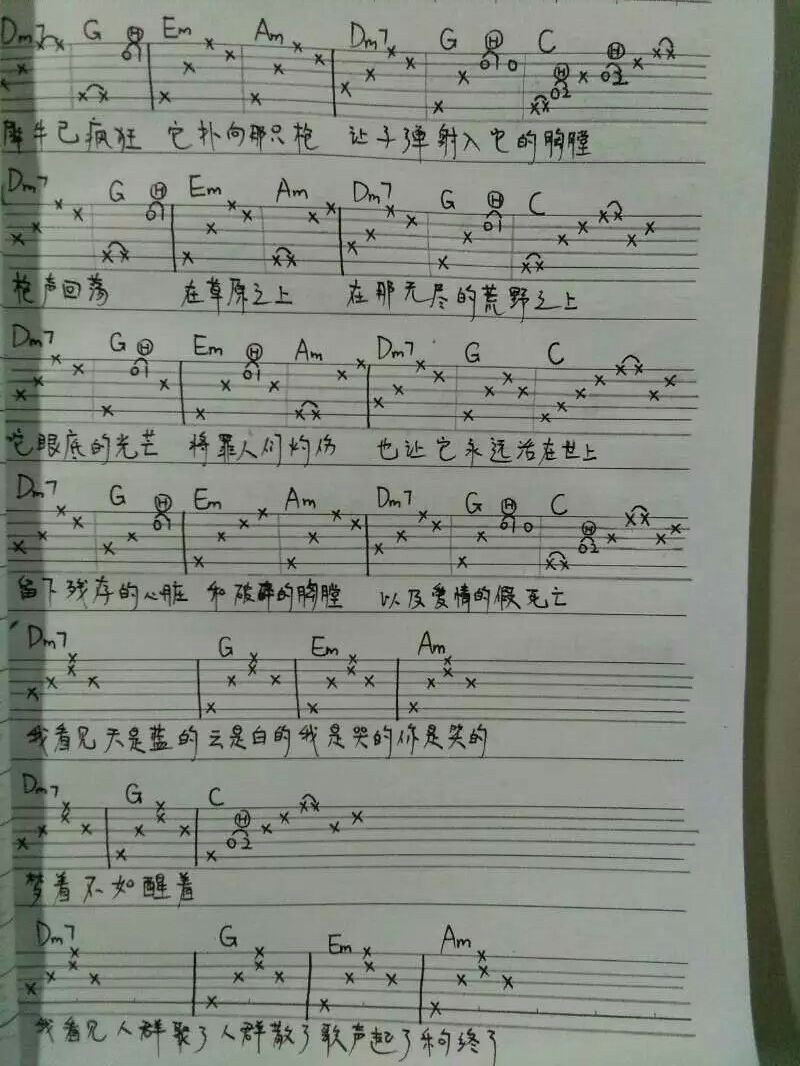 Dm7 G Ⓗ Em Am Dm7 G Ⓗ C Ⓗ Ⓗ
犀牛已疯狂 它扑向那只枪 让子弹射入它的胸膛
Dm7 G Ⓗ Em Am Dm7 G Ⓗ C
枪声回荡 在草原之上 在那无尽的荒野之上
Dm7 G Ⓗ Em Ⓗ Am Dm7 G C
它眼底的光芒 将罪人们灼伤 也让它永远活在世上
Dm7 G Ⓗ Em Am Dm7 G Ⓗ C Ⓗ
留下残存的心脏 和破碎的胸膛 以及爱情的假死亡
Dm7 G Em Am
我看见天是蓝的云是白的我是哭的你是笑的
Dm7 G C Ⓗ
梦着不如醒着
Dm7 G Em Am
我看见人群聚了人群散了歌声起了 终了